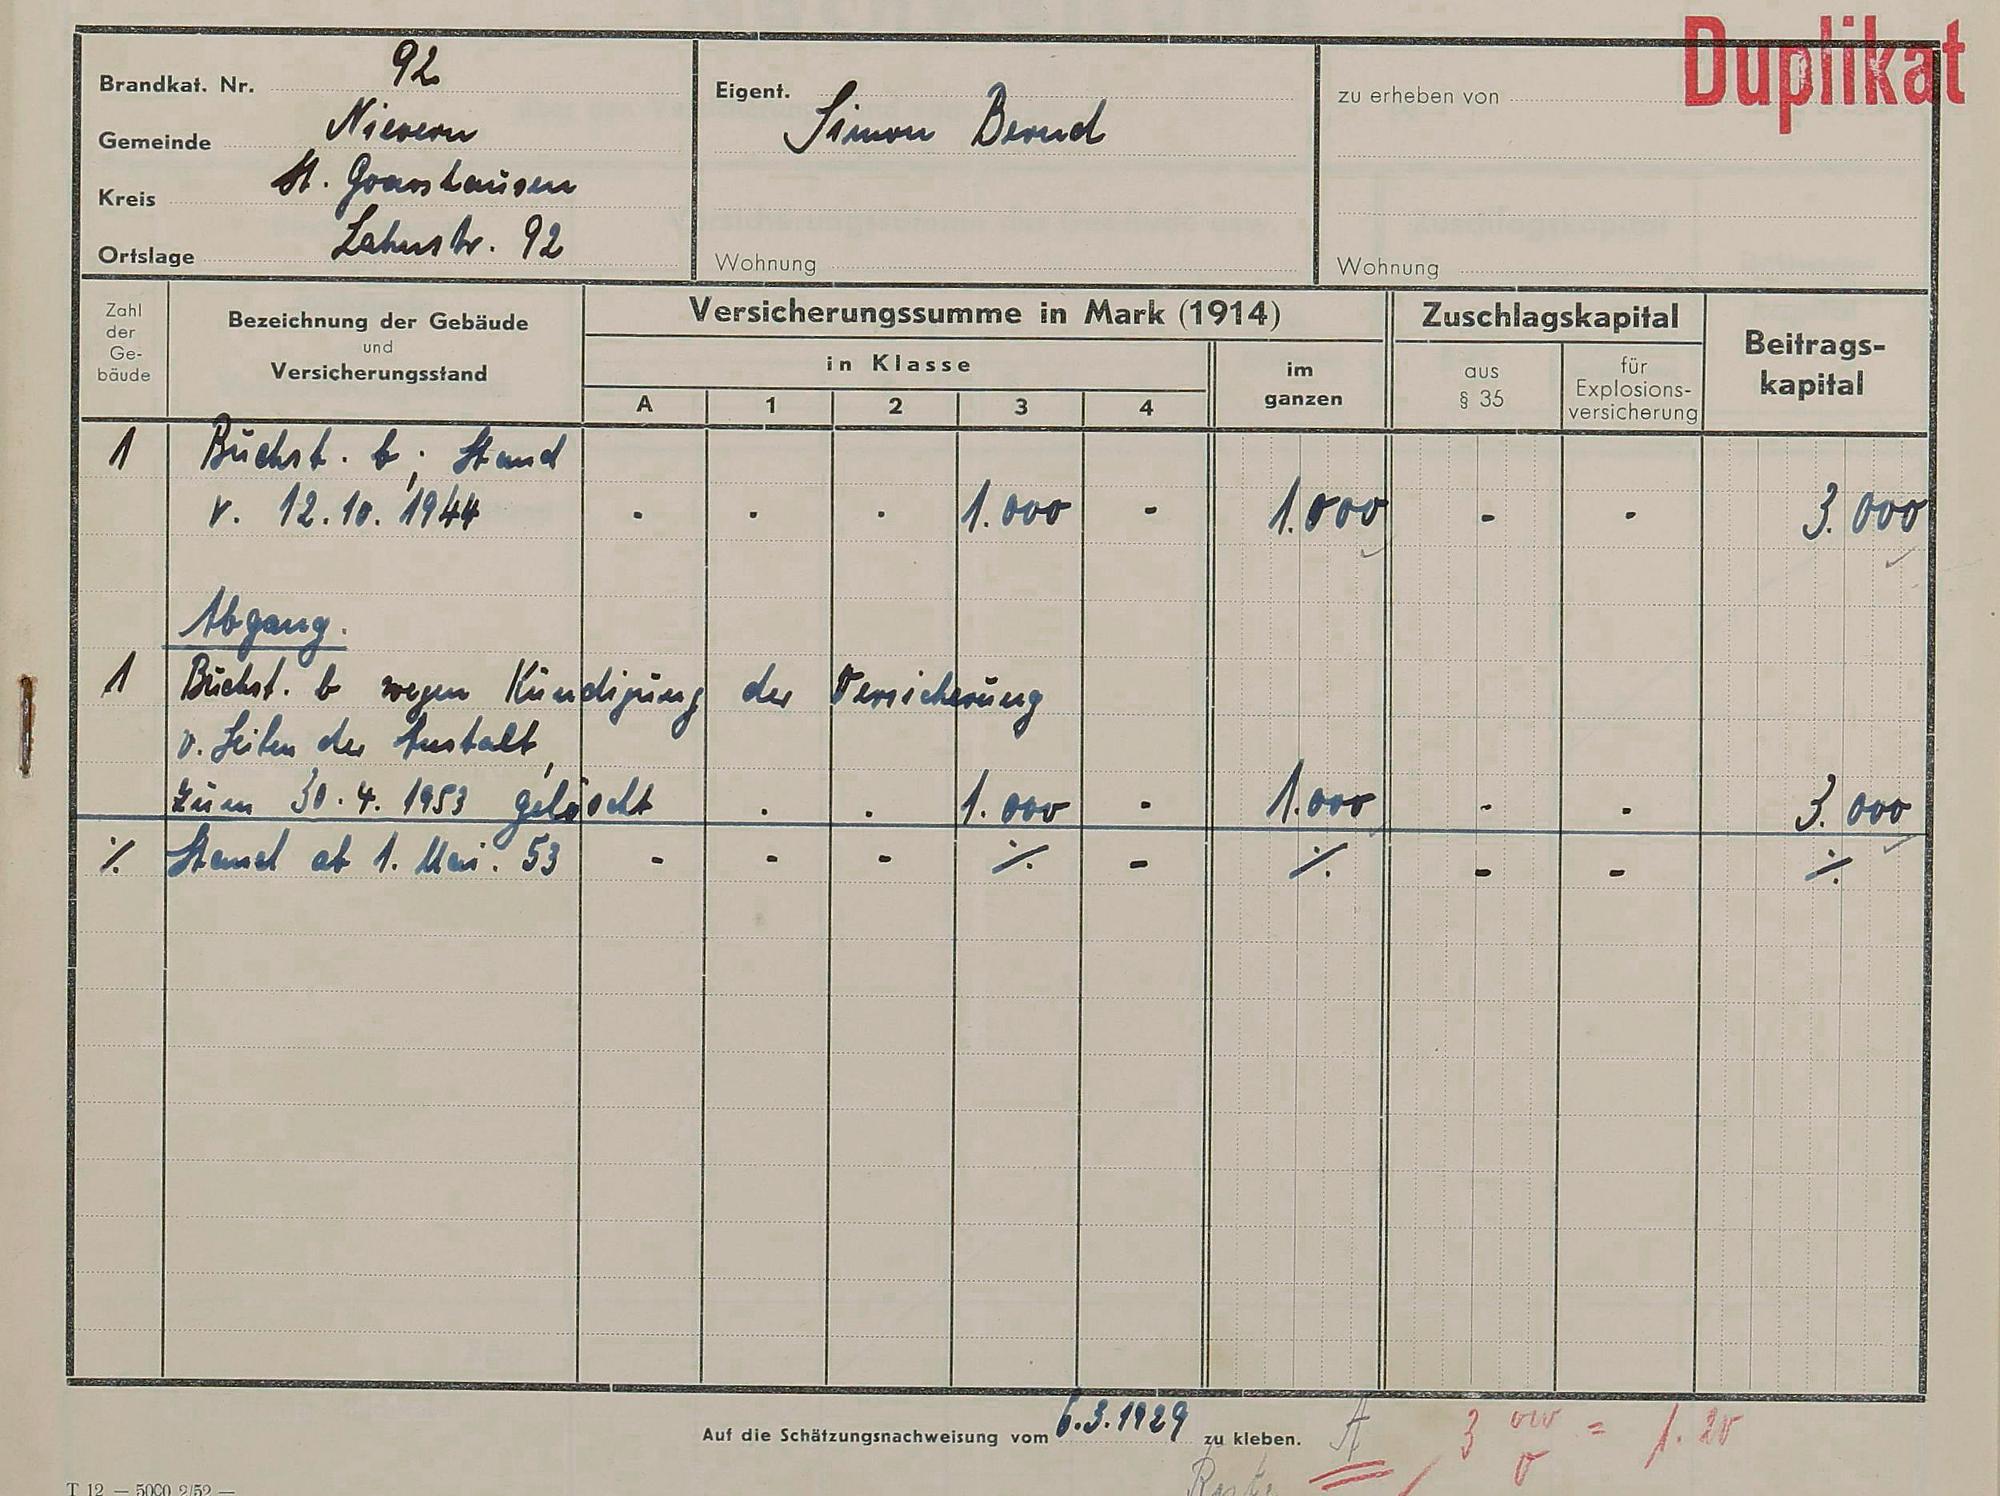 Duplikat
Brandkat. Nr. 92
Gemeinde Nievern
Kreis St. Goarshausen
Ortslage Lahnstr. 92
Eigent. Simon Bernd
Wohnung
zu erheben von
Wohnung
Zahl der Ge-bäude
Bezeichnung der Gebäude
und
Versicherungsstand
Versicherungssumme in Mark (1914)
in Klasse
A 1 2 3 4
im ganzen
Zuschlagskapital
aus § 35
für Explosions-versicherung
Beitrags-kapital
1 Buchst. b, Stand
v. 12.10.1944 - - - 1.000 - 1.000 - - 3.000
Abgang.
1 Buchst. b wegen Kündigung der Versicherung
v. Seiten der Anstalt,
zum 30.4.1953 gelöscht . . 1.000 - 1.000 - - 3.000
⁒ Stand ab 1. Mai. 53 - - - ⁒ - ⁒ - - ⁒
Auf die Schätzungsnachweisung vom 6.3.1929 zu kleben.
A
3 000 = 1.20
0
T 12 — 5000 2/52 —